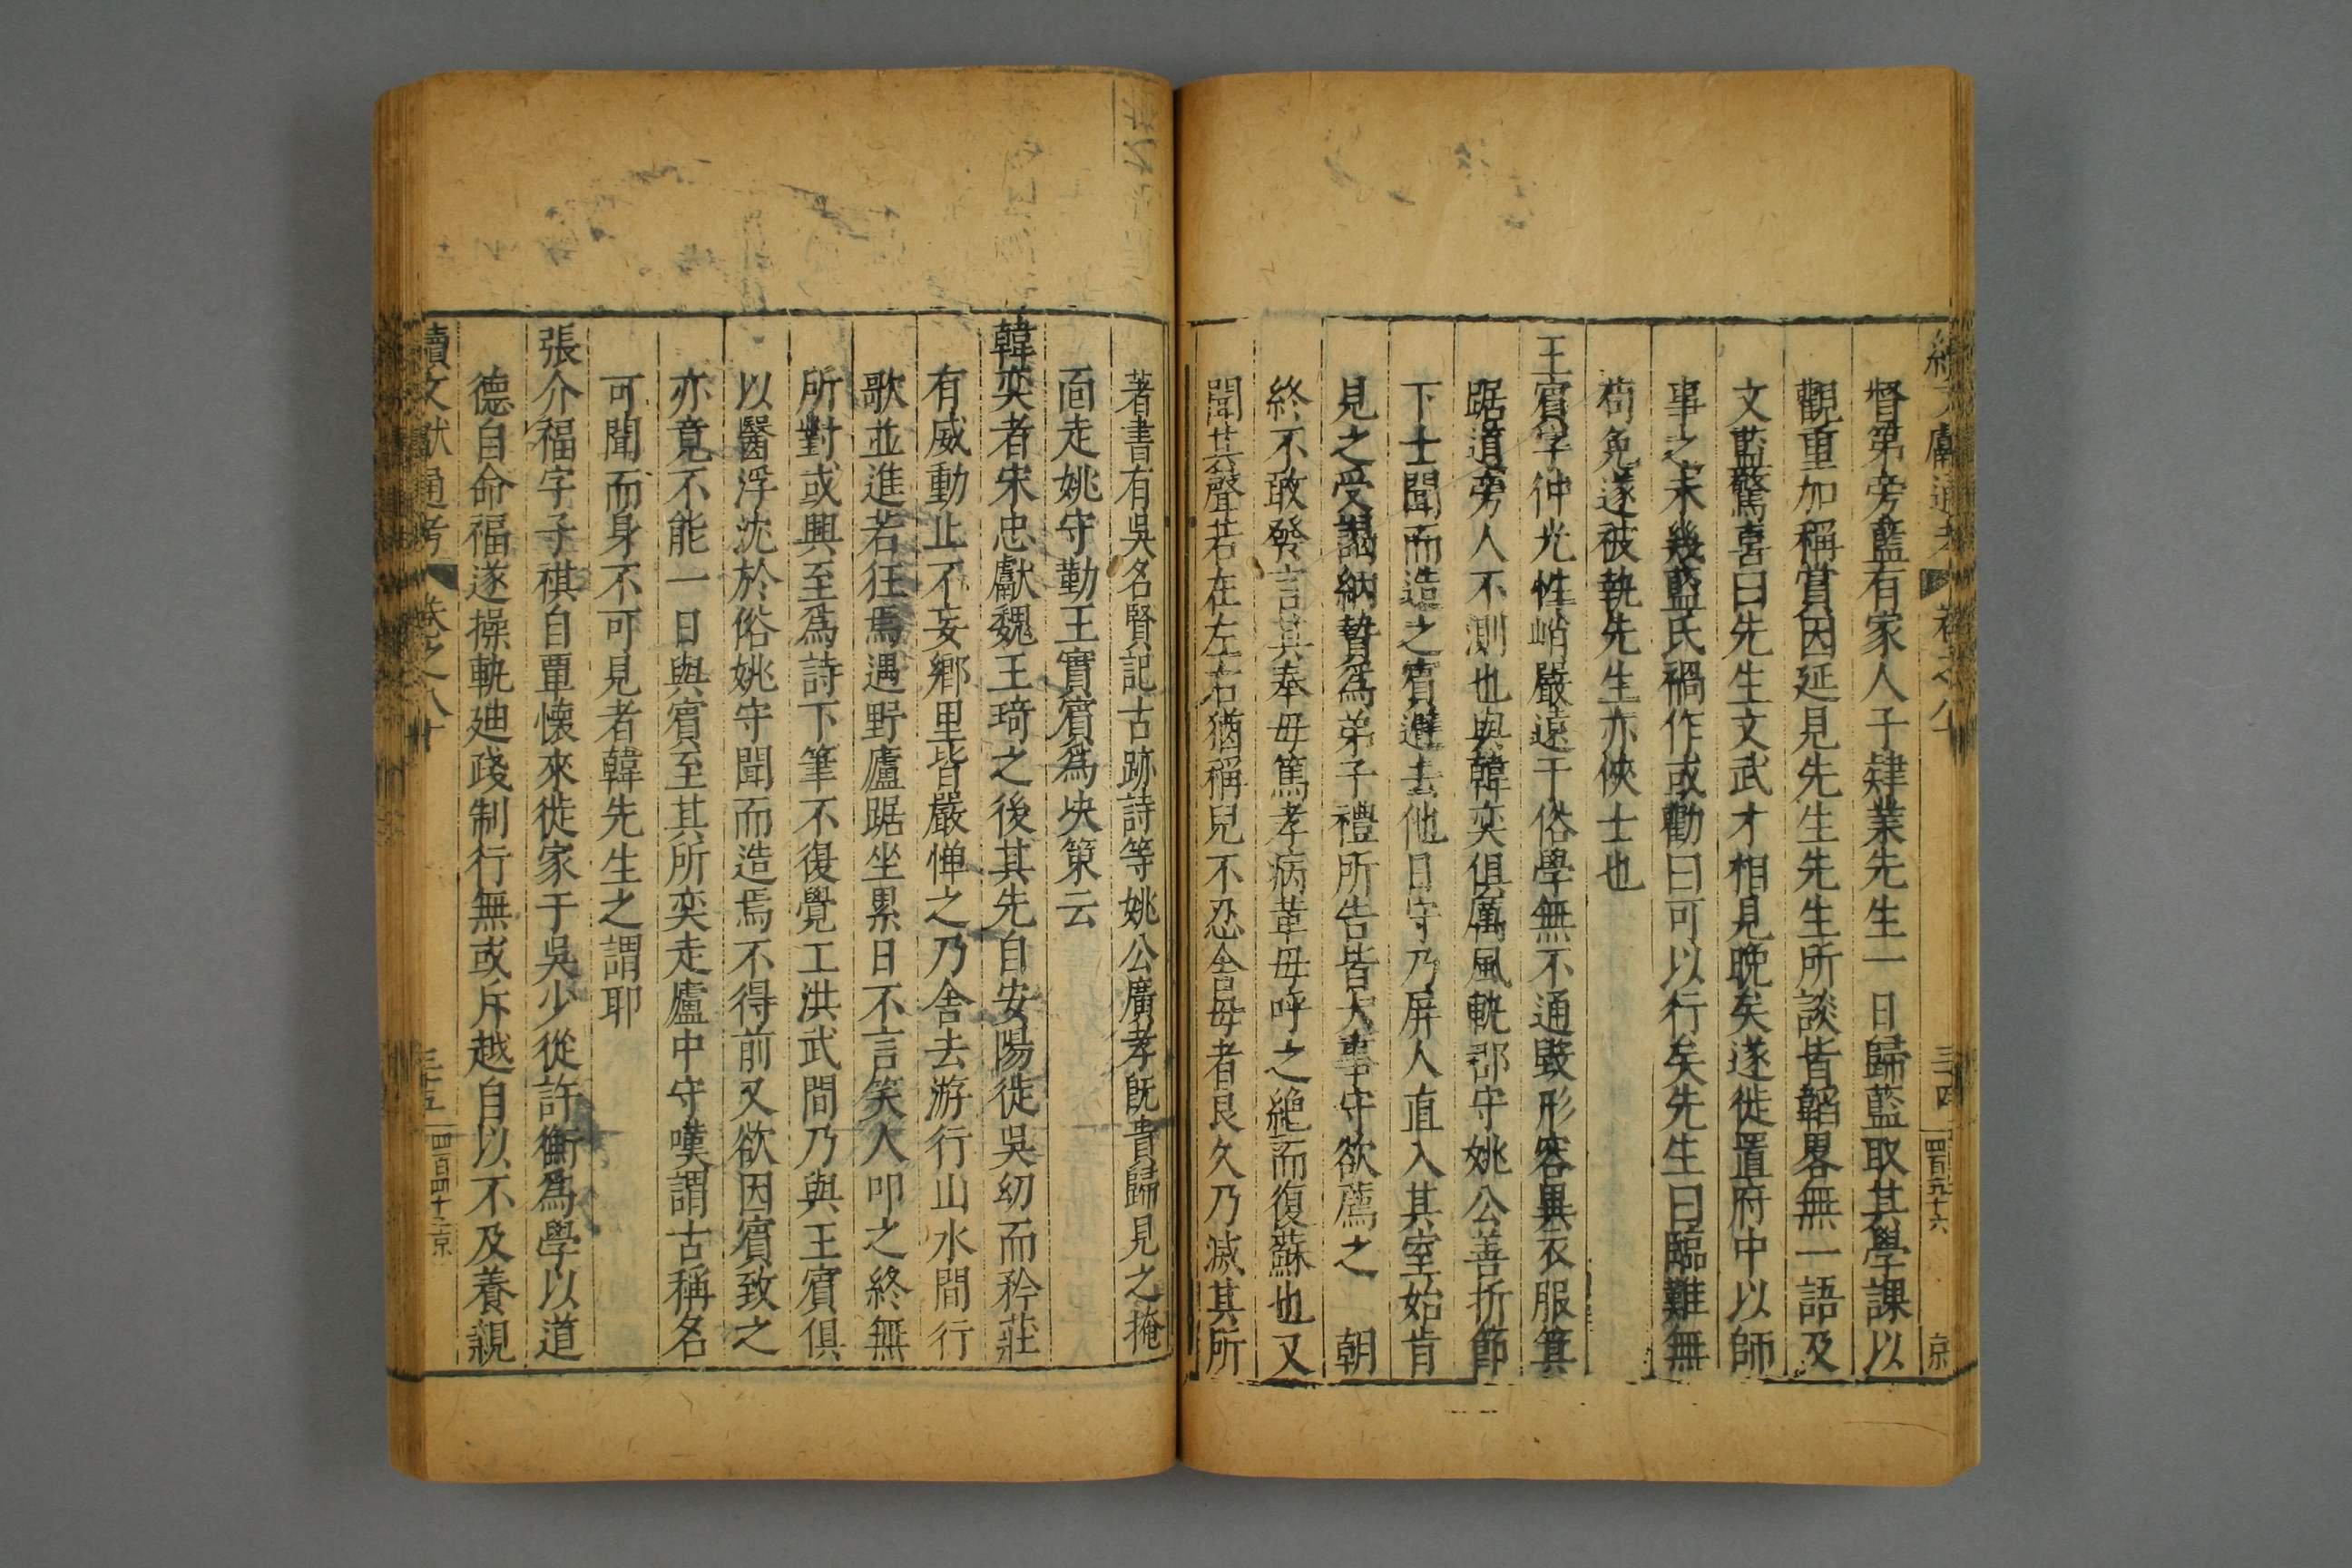 續文獻通考 卷之八十 三四 四百九十六 京
督第旁藍有家人子肄業先生一日歸藍取其學課以
觀重加稱賞因延見先生先生所談皆韜畧無一語及
文藍驚喜曰先生文武才相見晚矣遂徙置府中以師
事之未幾藍氏禍作或勸曰可以行矣先生曰臨難無
苟免遂被執先生亦俠士也
王賓字仲光性峭嚴遠于俗學無不通毀形容異衣服箕
踞道旁人不測也與韓奕俱厲風軌郡守姚公善折節
下士聞而造之賓避去他日守乃屏人直入其室始肯
見之受謁納贄為弟子禮所告皆大事守欲薦之 朝
終不敢發言其奉母篤孝病革母呼之絶而復蘇也又
聞其聲若在左右猶稱兒不忍舍母者良久乃滅其所
著書有吳名賢記古跡詩等姚公廣孝旣貴歸見之掩
面走姚守勤王實賓為决策云
韓奕者宋忠獻魏王琦之後其先自安陽徙吳幼而矜莊
有威動止不妄鄉里皆嚴憚之乃舍去游行山水間行
歌並進若狂焉遇野廬踞坐累日不言笑人叩之終無
所對或興至為詩下筆不復覺工洪武間乃與王賓俱
以醫浮沈於俗姚守聞而造焉不得前又欲因賓致之
亦竟不能一日與賓至其所奕走廬中守嘆謂古稱名
可聞而身不可見者韓先生之謂耶
張介福字子祺自覃懷來徙家于吳少從許衡為學以道
德自命福遂操軌廸踐制行無或斥越自以不及養親
續文獻通考 卷之八十 三五 四百四十三 京